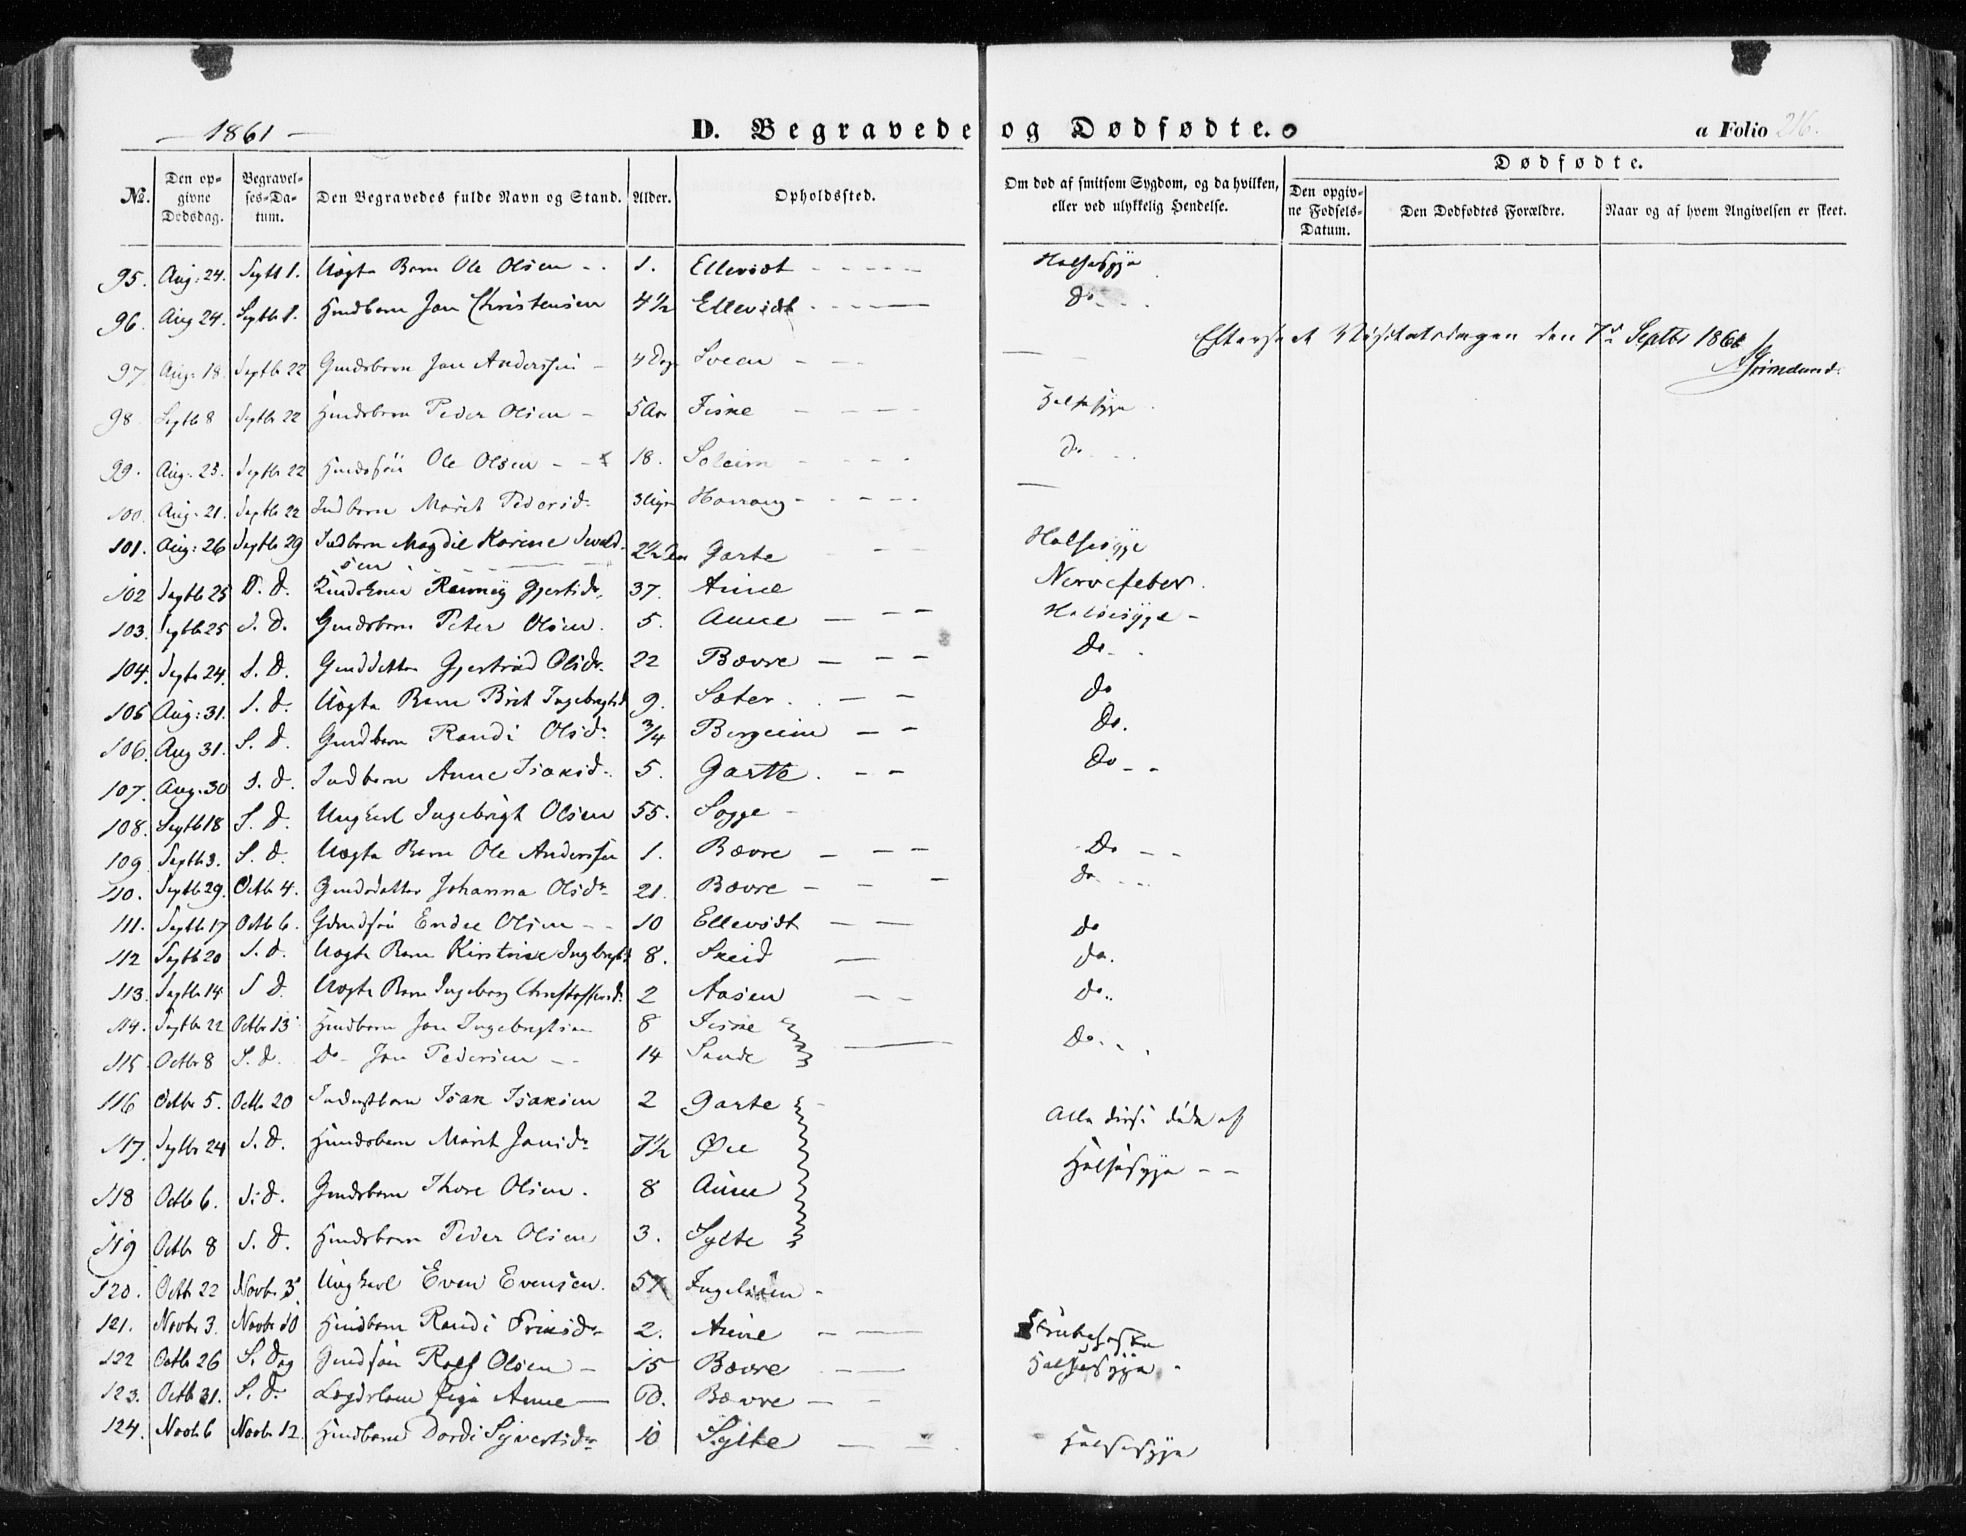 1861
D. Begravede og Dødfødte.
a Folio 216.
No. Den opgivne Dødsdag. Begravelses-Datum. Den Begravedes fulde Navn og Stand. Alder. Opholdssted. Om død af smitsom Sygdom, og da hvilken, eller ved ulykkelig Hendelse. Dødfødte. Den opgivne Fødsels-Datum. Den Dødfødtes Forældre. Naar og af hvem Angivelsen er skeet.
95. Aug: 24. Septb 1. Uægte Barn Ole Olsen 1. Ellevidt Halsesyge
96. Aug 24. Septb 1. Huusbarn Jon Christensen 4½ Ellevidt Do
Efterseet Visitatsdagen den 7de Septbr 1861
Grimelund
97 Aug: 18. Septb 22 Gmdsbarn Jon Anderssen 4 Dage Sveen
98 Septb 8 Septb 22 Huusbarn Peder Olsen 5 Aar Fiske Halsesyge
99. Aug. 23. Septb 22 Ole Olsen 18. Soleim Do
100. Aug. 21. Septb 22 Indbarn Marit Pedersd. 3 Harrang
101. Aug: 26 Septb 29 Indbarn Magdil Karine Sevaldsen 2½ Garte Halsesyge
102 Septb 25 S. D. Ranney Gjertsdr 37. Aune Nervefeber.
103. Septb 25 S. D. Gmdsbarn Peter Olsen. 5. Aune Halsesyge
104. Septb 24. S. D. Gmddatter Gjertrud Olsdr. 22 Bævre Do
105 Aug: 31. S. d. Uægte Barn Brit Ingebrigtsd 9. Sæter Do
106. Aug 31. S. d. Gmdbarn Randi Olsdr ¾ Bergeim Do.
107. Aug. 30 S. d. Indbarn Anne Isaksd. 5. Garte Do
108. Septb 18 S. d. Ungkarl Ingebrigt Olsen 55. Sogge
109 Septb 3. S. d. Uægte Barn Ole Anderssen 1. Bævre Do
110. Septb 29. Octb 4. Gmdsdatter Johanna Olsdr 21. Bævre Do
111. Septb 17 Octb 6. Gmdsøn Endre Olsen 10 Ellevidt Do
112 Septb 20 S. d. Uægte Barn Kirstine Ingebrigtsd 8. Skeid Do.
113. Septb 14 S D. Uægte Barn Ingeborg Christoffersd. 2 Aasen Do.
114. Septb 22 Octbr 13 Huusbarn Jon Ingebrigtsen 8 Fiske
115 Octbr 8 S. d. Do Jon Pedersen 14 Sande Do
116 Octbr 5. Octb 20 Isak Isaksen 2 Garte Alle disse døde af
117. Septbr 24 S. d. Huusbarn Marit Jonsdr 7½ Øie Halsesyge
118 Octb 6. S. d. Gmdsbarn Thore Olsen. 8 Aune
119 Octbr 8 S. d. Huusbarn Peder Olsen 3. Sylte
120. Octb 22 Novbr 3. Ungkarl Even Evensen. 57
121. Novbr 3. Novbr 10 Huusbarn Randi 2. Aune Strubehoste
122 Octb 26 S. Dag Gmdsøn Rolf Olsen 15 Bævre Halsesyge
123. Octb 31. S. d. Lægdslem Pige Anne 60. Bævre
124. Novb 6 Novbr 12. Huusbarn Dordi Syvertsdr 10 Sylte Halsesyge